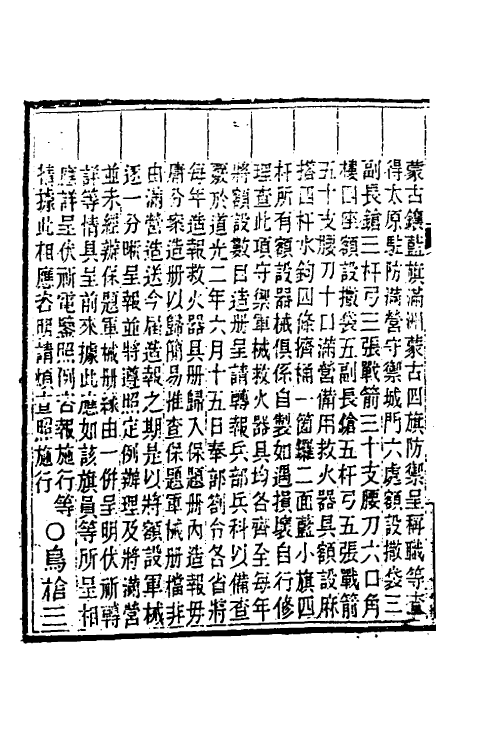 蒙古鑲藍旗滿洲蒙古四旗防禦呈稱職等查
得太原駐防滿營守禦城門六處額設撒袋三
副長鎗三杆弓三張戰箭三十支腰刀六口角
樓四座額設撒袋五副長鎗五杆弓五張戰箭
五十支腰刀十口滿營備用救火器具額設麻
搭四杆水鈎四條擠桶一箇鑼二面藍小旗四
杆所有額設器械俱係自製如遇損壞自行修
理查此項守禦軍械救火器具均各齊全每年
將額設數目造册呈請轉報兵部兵科以備查
覈於道光二年六月十五日奉部劄各省將
每年造報救火器具册歸入保題册內造報毋
庸分案造册以歸簡易推查保題軍械册檔非
由滿營造送今屆造報之期是以將額設軍械
逐一分晰呈報並將遵照定例辦理及將滿營
並未經辦保題軍械册緣由一併呈明伏祈轉
詳等情具呈前來據此應如該旗員等所呈相
應詳呈伏祈電鑒照例咨報施行等
情據此相應咨照請煩查照施行 〇鳥槍三